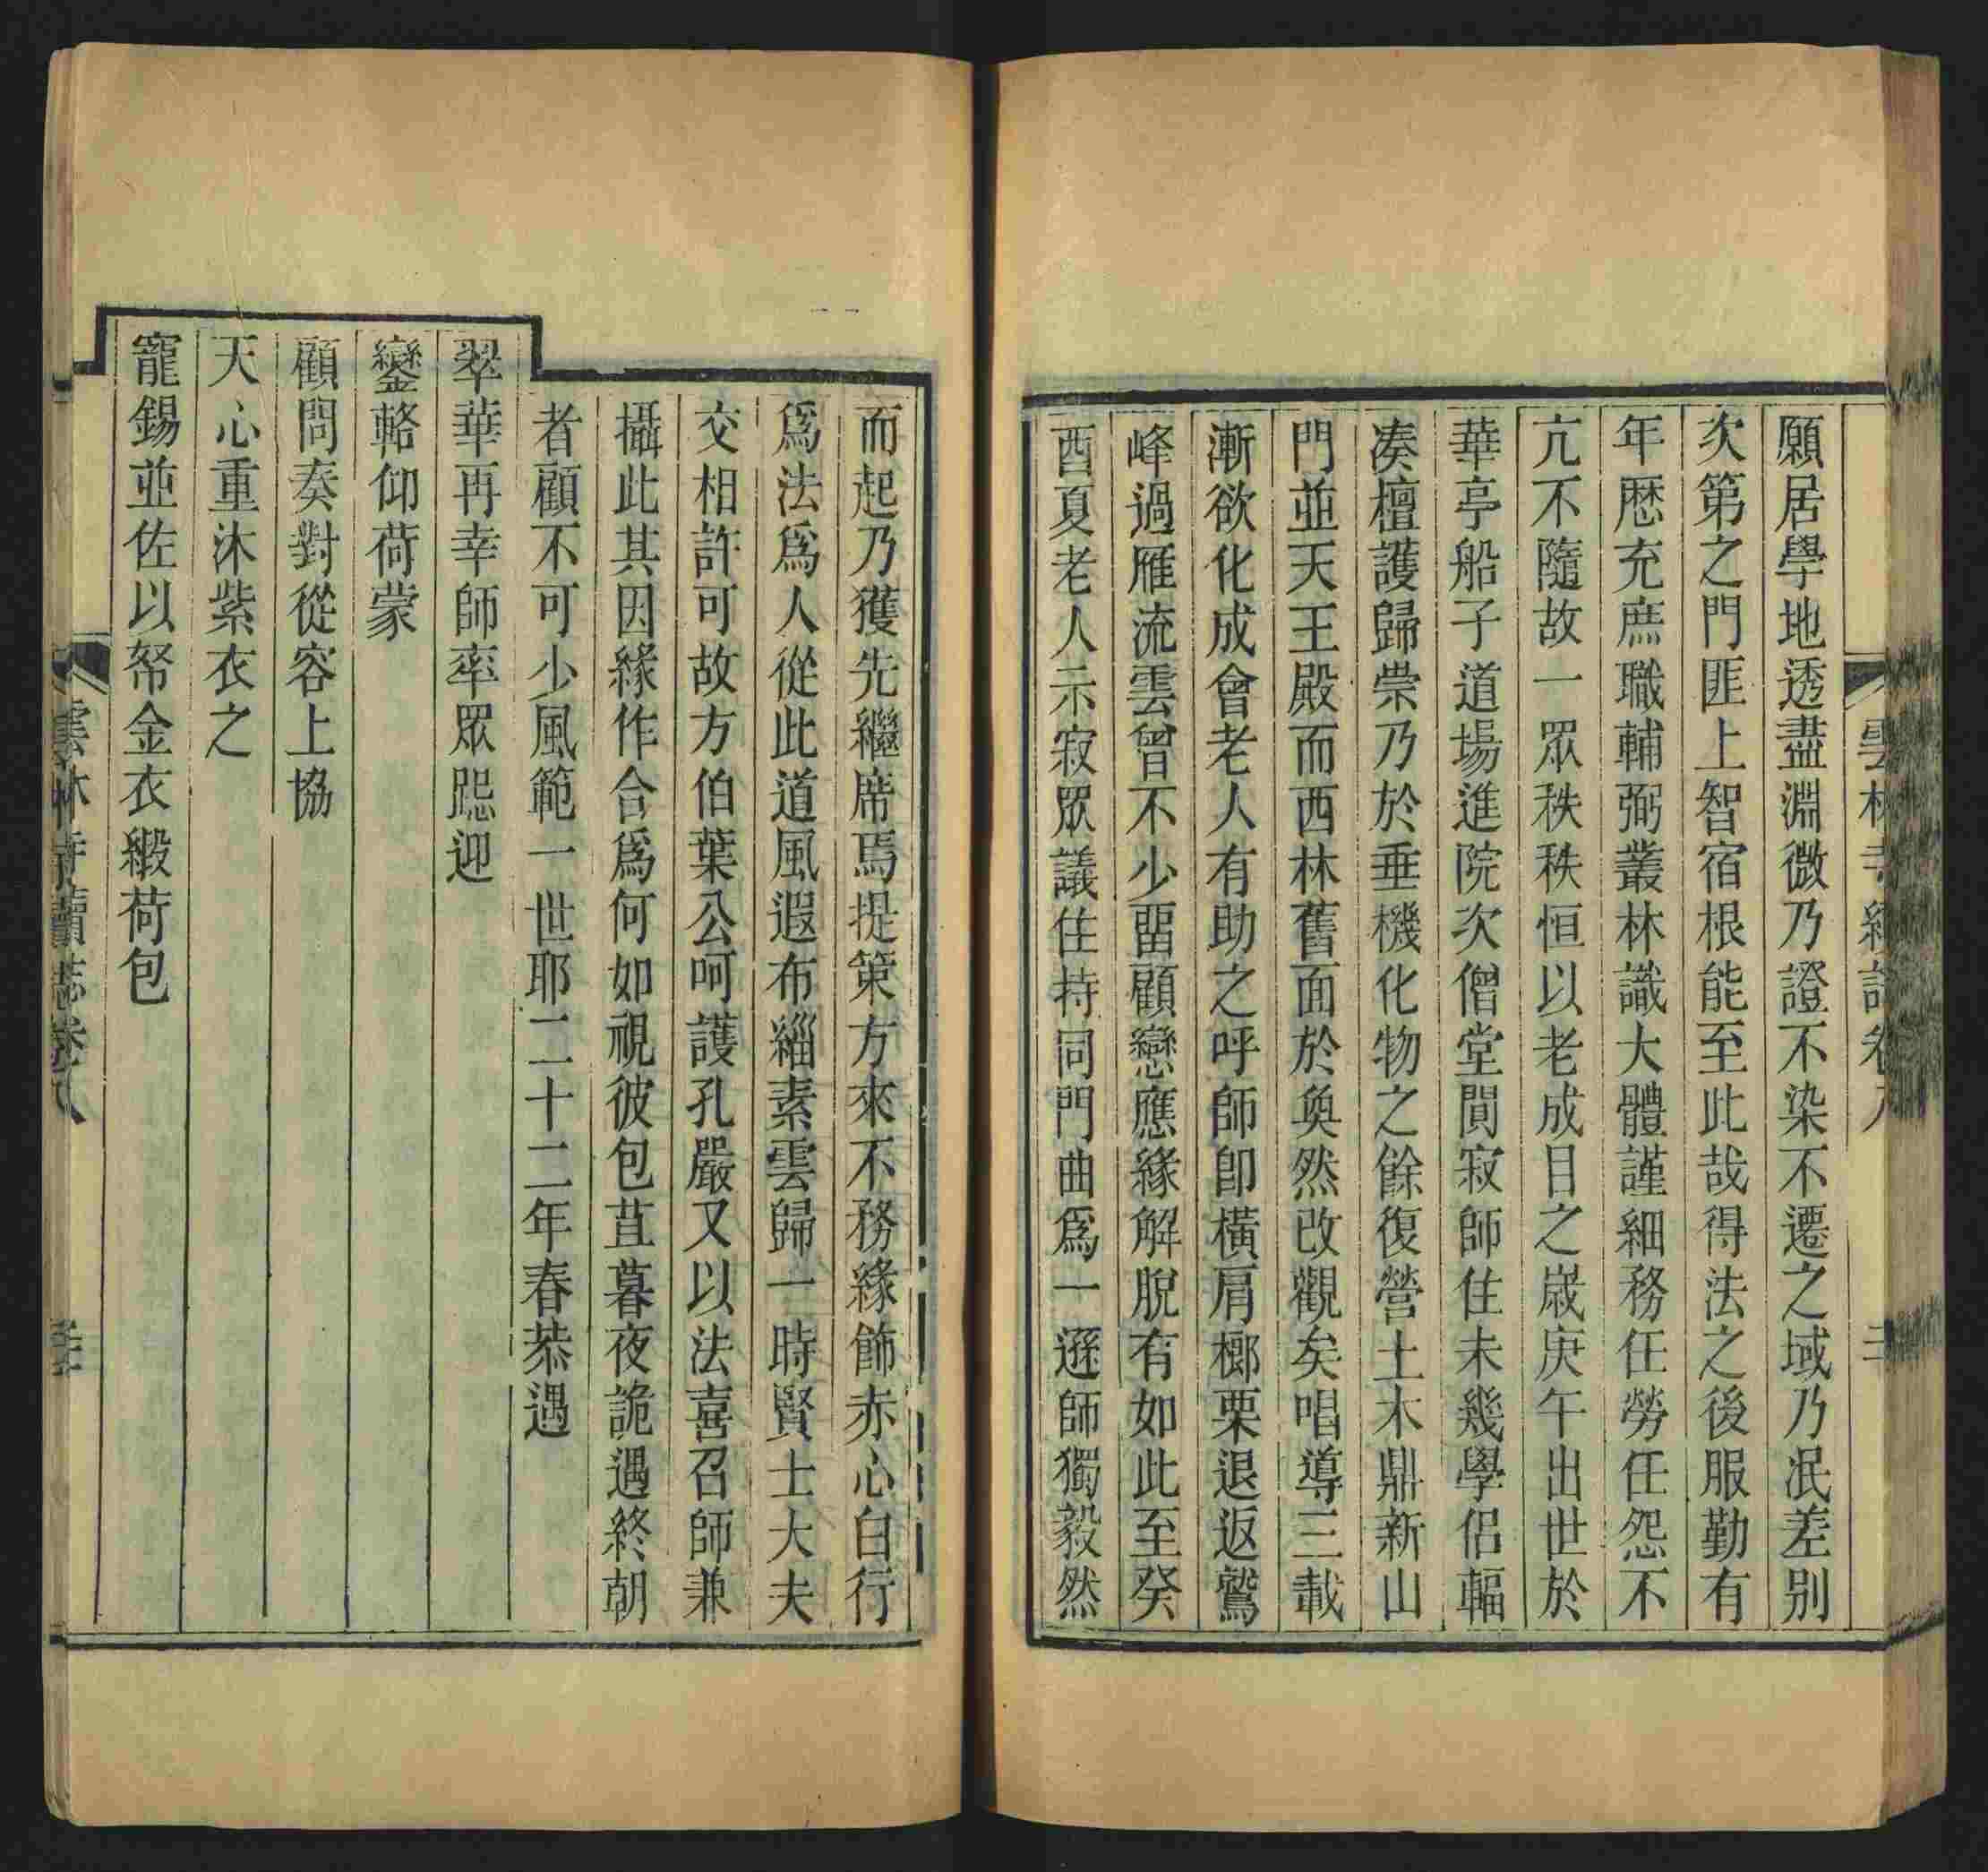 雲林寺續誌卷八 二
願居學地透盡淵微乃證不染不遷之域乃泯差别
次第之門匪上智宿根能至此哉得法之後服勤有
年歷充庶職輔弼叢林識大體謹細務任勞任怨不
亢不隨故一眾秩秩恒以老成目之歲庚午出世於
華亭船子道場進院次僧堂閴寂師住未幾學侣輻
凑檀護歸崇乃於垂機化物之餘復營土木鼎新山
門並天王殿而西林舊面於奐然改觀矣唱導三載
漸欲化成會老人有助之呼師卽橫肩榔栗退返鷲
峰過雁流雲曾不少畱顧戀應緣解脫有如此至癸
酉夏老人示寂眾議住持同門曲爲一遜師獨毅然
而起乃獲先繼席焉提策方來不務緣飾赤心白行
爲法爲人從此道風遐布緇素雲歸一時賢士大夫
交相許可故方伯葉公呵護孔嚴又以法喜召師兼
攝此其因緣作合爲何如視彼包苴暮夜詭遇終朝
者顧不可少風範一世耶二十二年春恭遇
翠華再幸師率眾跽迎
鑾輅仰荷蒙
顧問奏對從容上協
天心重沐紫衣之
寵錫並佐以帑金衣緞荷包
雲林寺續誌卷八